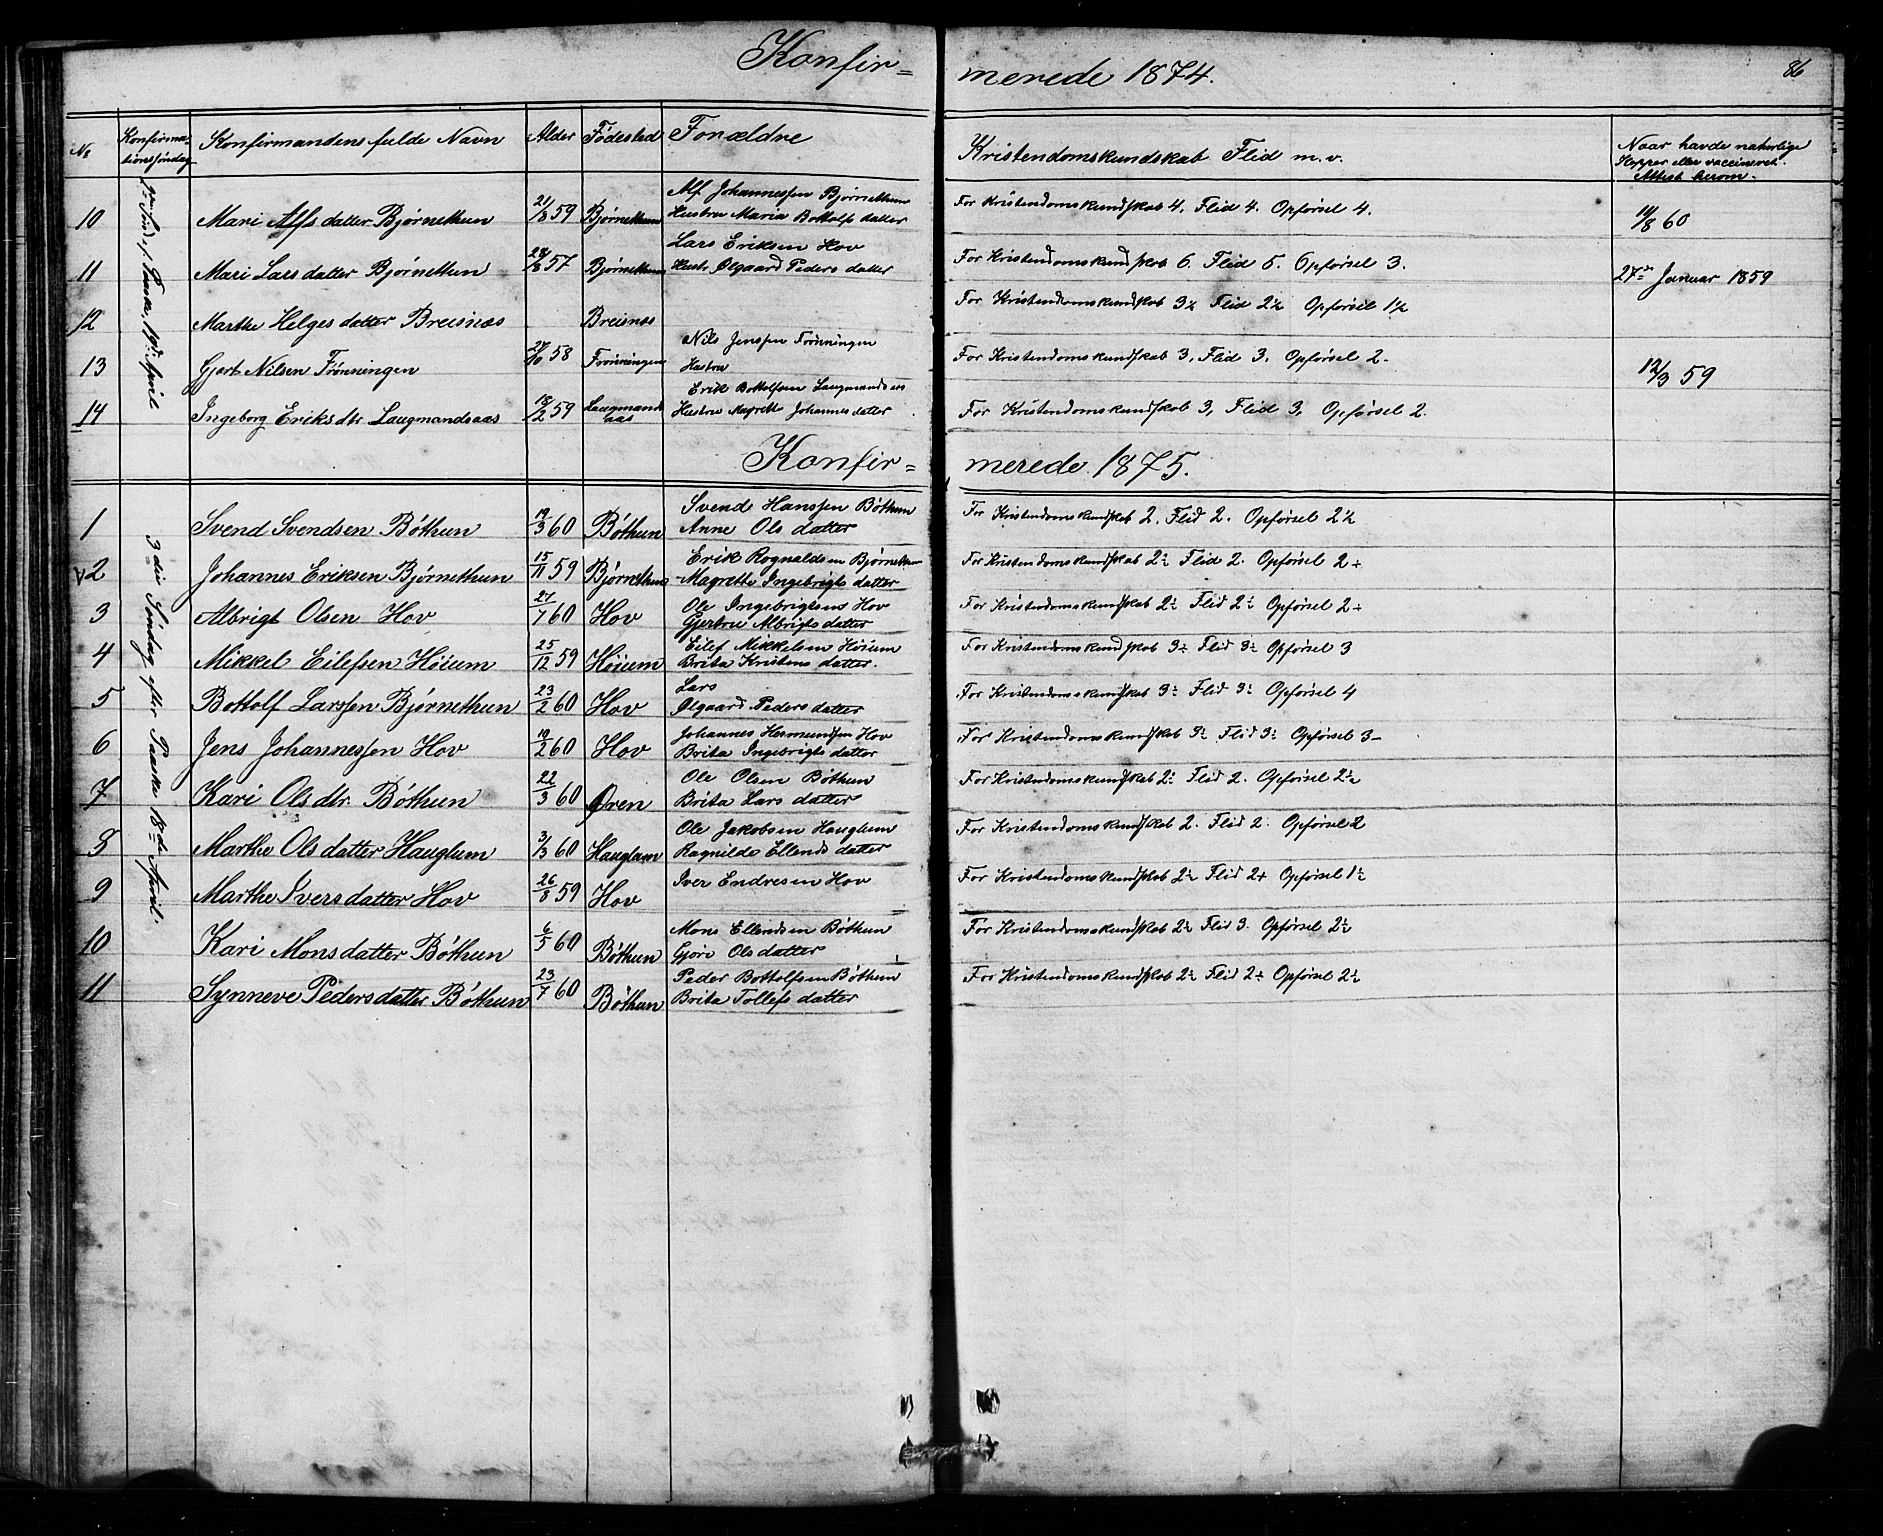 Konfir=
merede 1874.
86
№
Konfirma-
tionssøndag
Konfirmandens fulde Navn
Alder
Fødested
Forældre
Kristendomskundskab Flid m. v.
Naar havde naturlige
Kopper eller vaccineret.
Attest herom.
2den Sønd. e. Paaske, 19de April
10 Mari Alfsdatter Bjørnethun 21/3 59 Bjørnethun
Alf Johannessen Bjørnethun
Hustru Maria Bottolfsdatter
For Kristendomskundskab 4. Flid 4. Opførsel 4.
11/8 60
11 Mari Larsdatter Bjørnethun 28/8 57 Bjørnethun
Lars Eriksen Hov
Hustr. Ølgaard Pedersdatter
For Kristendomskundskab 6. Flid 5. Opførsel 3.
27de Januar 1859
12 Marthe Helgesdatter Breisnæs Breisnæs
For Kristendomskundskab 3½ Flid 2½ Opførsel 1½
13 Gjert Nilsen Frønningen 58 Frønningen
Nils Jenssen Frønningen
Hustru
For Kristendomskundskab 3, Flid 3, Opførsel 2.
12/3 59
14 Ingeborg Eriksdtr Laugmandsaas 18/2 59 Laugmands
aas
Erik Bottolfsen Laugmandsaas
Hustru Magrete Johannesdatter
For Kristendomskundskab 3, Flid 3, Opførsel 2.
Konfir=
merede 1875.
3die Søndag efter Paaske 18de April
1 Svend Svendsen Bøthun 19/3 60 Bøthun
Svend Hanssen Bøthun
Anne Olsdatter
For Kristendomskundskab 2. Flid 2. Opførsel 2½
v2 Johannes Eriksen Bjørnethun 15/11 59 Bjørnethun
Erik Rognaldsen Bjørnethun
Magrette Ingebrigtsdatter
For Kristendomskundskab 2½ Flid 2. Opførsel 2+
3 Albrigt Olsen Hov 27/1 60 Hov
Ole Ingebrigtsens Hov
Gjertrue Albrigtsdatter
For Kristendomskundskab 2½ Flid 2½ Opførsel 2+
4 Mikkel Eilefsen Høium 25/12 59 Høium
Eilef Mikkelsen Høium
Brita Kristensdatter.
For Kristendomskundskab 3½ Flid 3½ Opførsel 3
5 Bottolf Larssen Bjørnethun 23/2 60 Hov
Lars
Ølgaard Pedersdatter
For Kristendomskundskab 3½ Flid 3½ Opførsel 4
6 Jens Johannessen Hov 19/2 60 Hov
Johannes Hermundsen Hov
Brita Ingebrigtsdatter
For Kristendomskundskab 3½ Flid 3½ Opførsel 3-
7 Kari Olsdtr. Bøthun 22/3 60 Øren
Ole Olsen Bøthun
Brita Larsdatter
For Kristendomskundskab 2½ Flid 2. Opførsel 2½
8 Marthe Olsdatter Hauglum 3/3 60 Hauglum
Ole Jakobsen Hauglum
Ragnilde Ellendsdatter
For Kristendomskundskab 2. Flid 2. Opførsel 2
9 Marthe Iversdatter Hov 26/8 59 Hov
Iver Endresen Hov
For Kristendomskundskab 2½ Flid 2+ Opførsel 1½
10 Kari Monsdatter Bøthun 6/5 60 Bøthun
Mons Ellendsen Bøthun
Gjøri Olsdatter
For Kristendomskundskab 2½ Flid 3. Opførsel 2½
11 Synneve Pedersdatter Bøthun 23/7 60 Bøthun
Peder Bottolfsen Bøthun
Brita Tollefsdatter
For Kristendomskundskab 2½ Flid 2+ Opførsel 2½